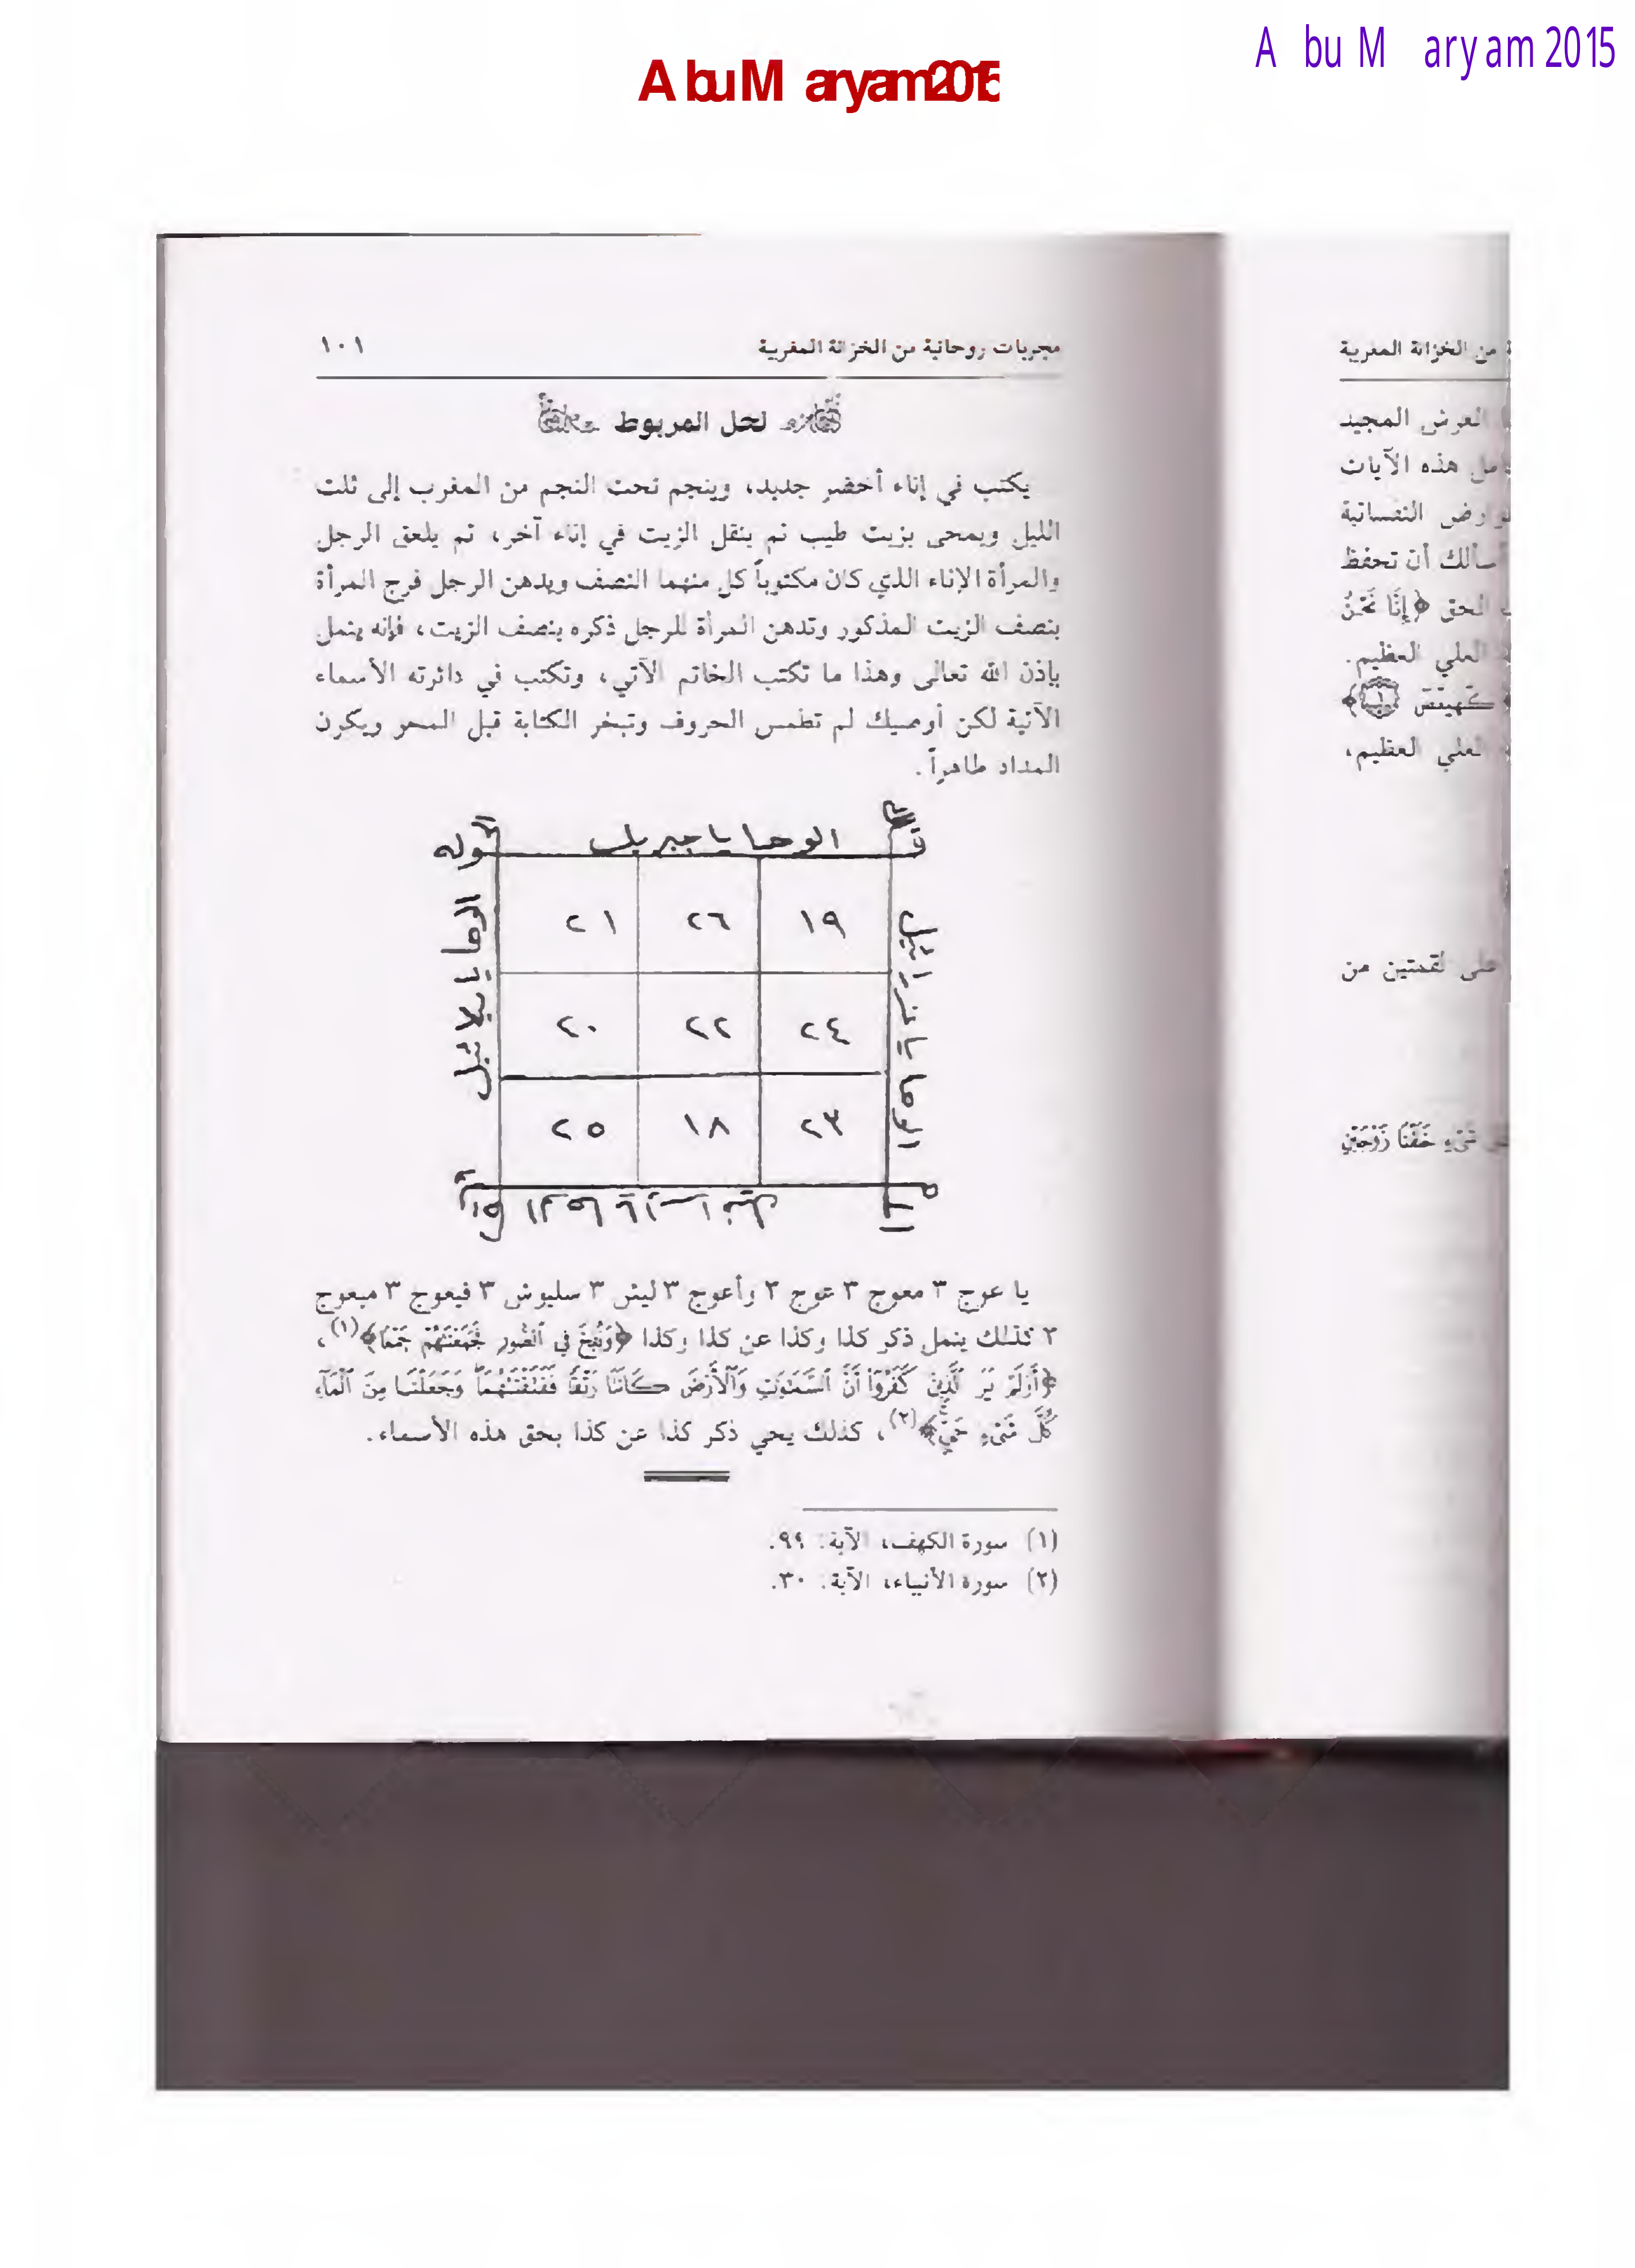 Abu Maryam 2015
Abu Maryam 2015
مجربات روحانية من الخزانة المغربية ١٠١
لحل المربوط
يكتب في إناء أخضر جديد، وينجم تحت النجم من المغرب إلى ثلث
الليل ويمحى بزيت طيب ثم ينقل الزيت في إناء آخر، ثم يلعق الرجل
والمرأة الإناء الذي كان مكتوباً كل منهما النصف ويدهن الرجل فرج المرأة
بنصف الزيت المذكور وتدهن المرأة للرجل ذكره بنصف الزيت، فإنه ينحل
بإذن الله تعالى وهذا ما تكتب الخاتم الآتي، وتكتب في دائرته الأسماء
الآتية لكن أوصيك لم تطمس الحروف وتبخر الكتابة قبل المحو ويكون
المداد طاهراً.
الوحا يا جبريل
قوله
١٩ ٢٦ ٢١
٢٤ ٢٢ ٢٠
٢٣ ١٨ ٢٥
الوحا يا عزرائيل
الوحا يا
يا عوج ٣ معوج ٣ عوج ٢ وأعوج ٣ ليش ٣ سليوش ٣ فيعوج ٣ ميعوج
٢ كذلك ينحل ذكر كذا وكذا عن كذا وكذا ﴿وَنُفِخَ فِي ٱلصُّورِ فَجَمَعْنَٰهُمْ جَمْعًا﴾(١)،
﴿أَوَلَمْ يَرَ ٱلَّذِينَ كَفَرُوٓا۟ أَنَّ ٱلسَّمَٰوَٰتِ وَٱلْأَرْضَ كَانَتَا رَتْقًا فَفَتَقْنَٰهُمَا وَجَعَلْنَا مِنَ ٱلْمَآءِ
كُلَّ شَىْءٍ حَىٍّ﴾(٢)، كذلك يحي ذكر كذا عن كذا بحق هذه الأسماء.
(١) سورة الكهف، الآية: ٩٩.
(٢) سورة الأنبياء، الآية: ٣٠.
من الخزانة المغربية
العرش المجيد
هذه الآيات
النفسانية
أسألك أن تحفظ
الحق ﴿إِنَّا نَحْنُ
العلي العظيم.
كهيعص ١﴾
العلي العظيم،
على لقمتين من
شَىْءٍ خَلَقْنَا زَوْجَيْنِ